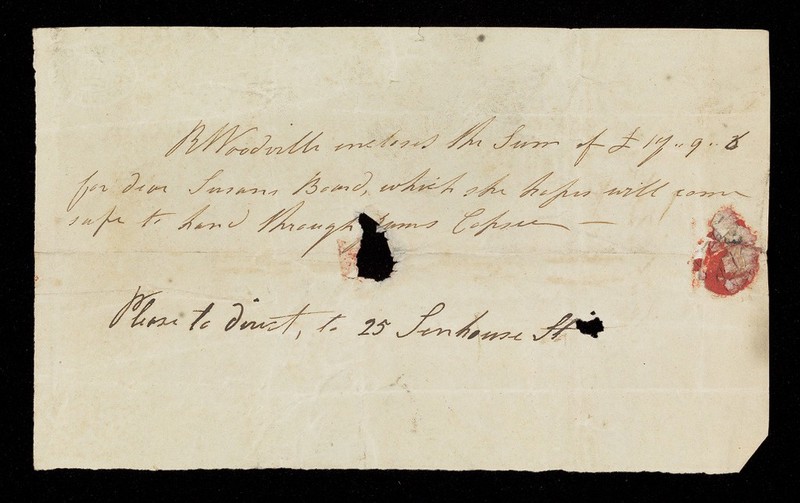 R Woodville incloses the Sum of £ 17 .. 9 .. 8
for dear Susans Board, which she hopes will come
safe to hand through Jams
Please to direct, to 25 Senhouse St